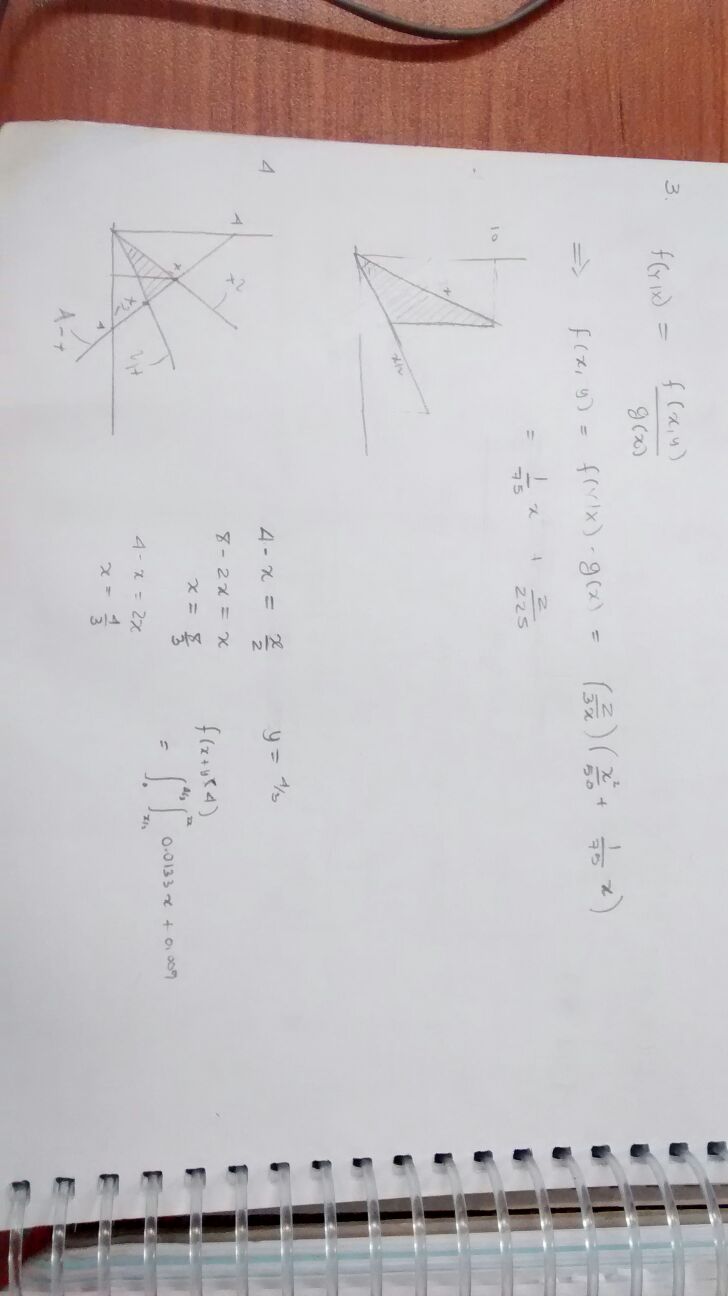 3.
f(y|x) = f(x,y) / g(x)
⇒ f(x, y) = f(y|x) · g(x) = (2/3x) (x²/50 + 1/75 x)
= 1/75 x + 2/225
10
4
4
4
4 - x = x/2
8 - 2x = x
x = 8/3
4 - x = 2x
x = 4/3
y = 4/3
f(x+y<4)
= ∫₀^4/3 ∫x/2^2x 0.0133x + 0.009